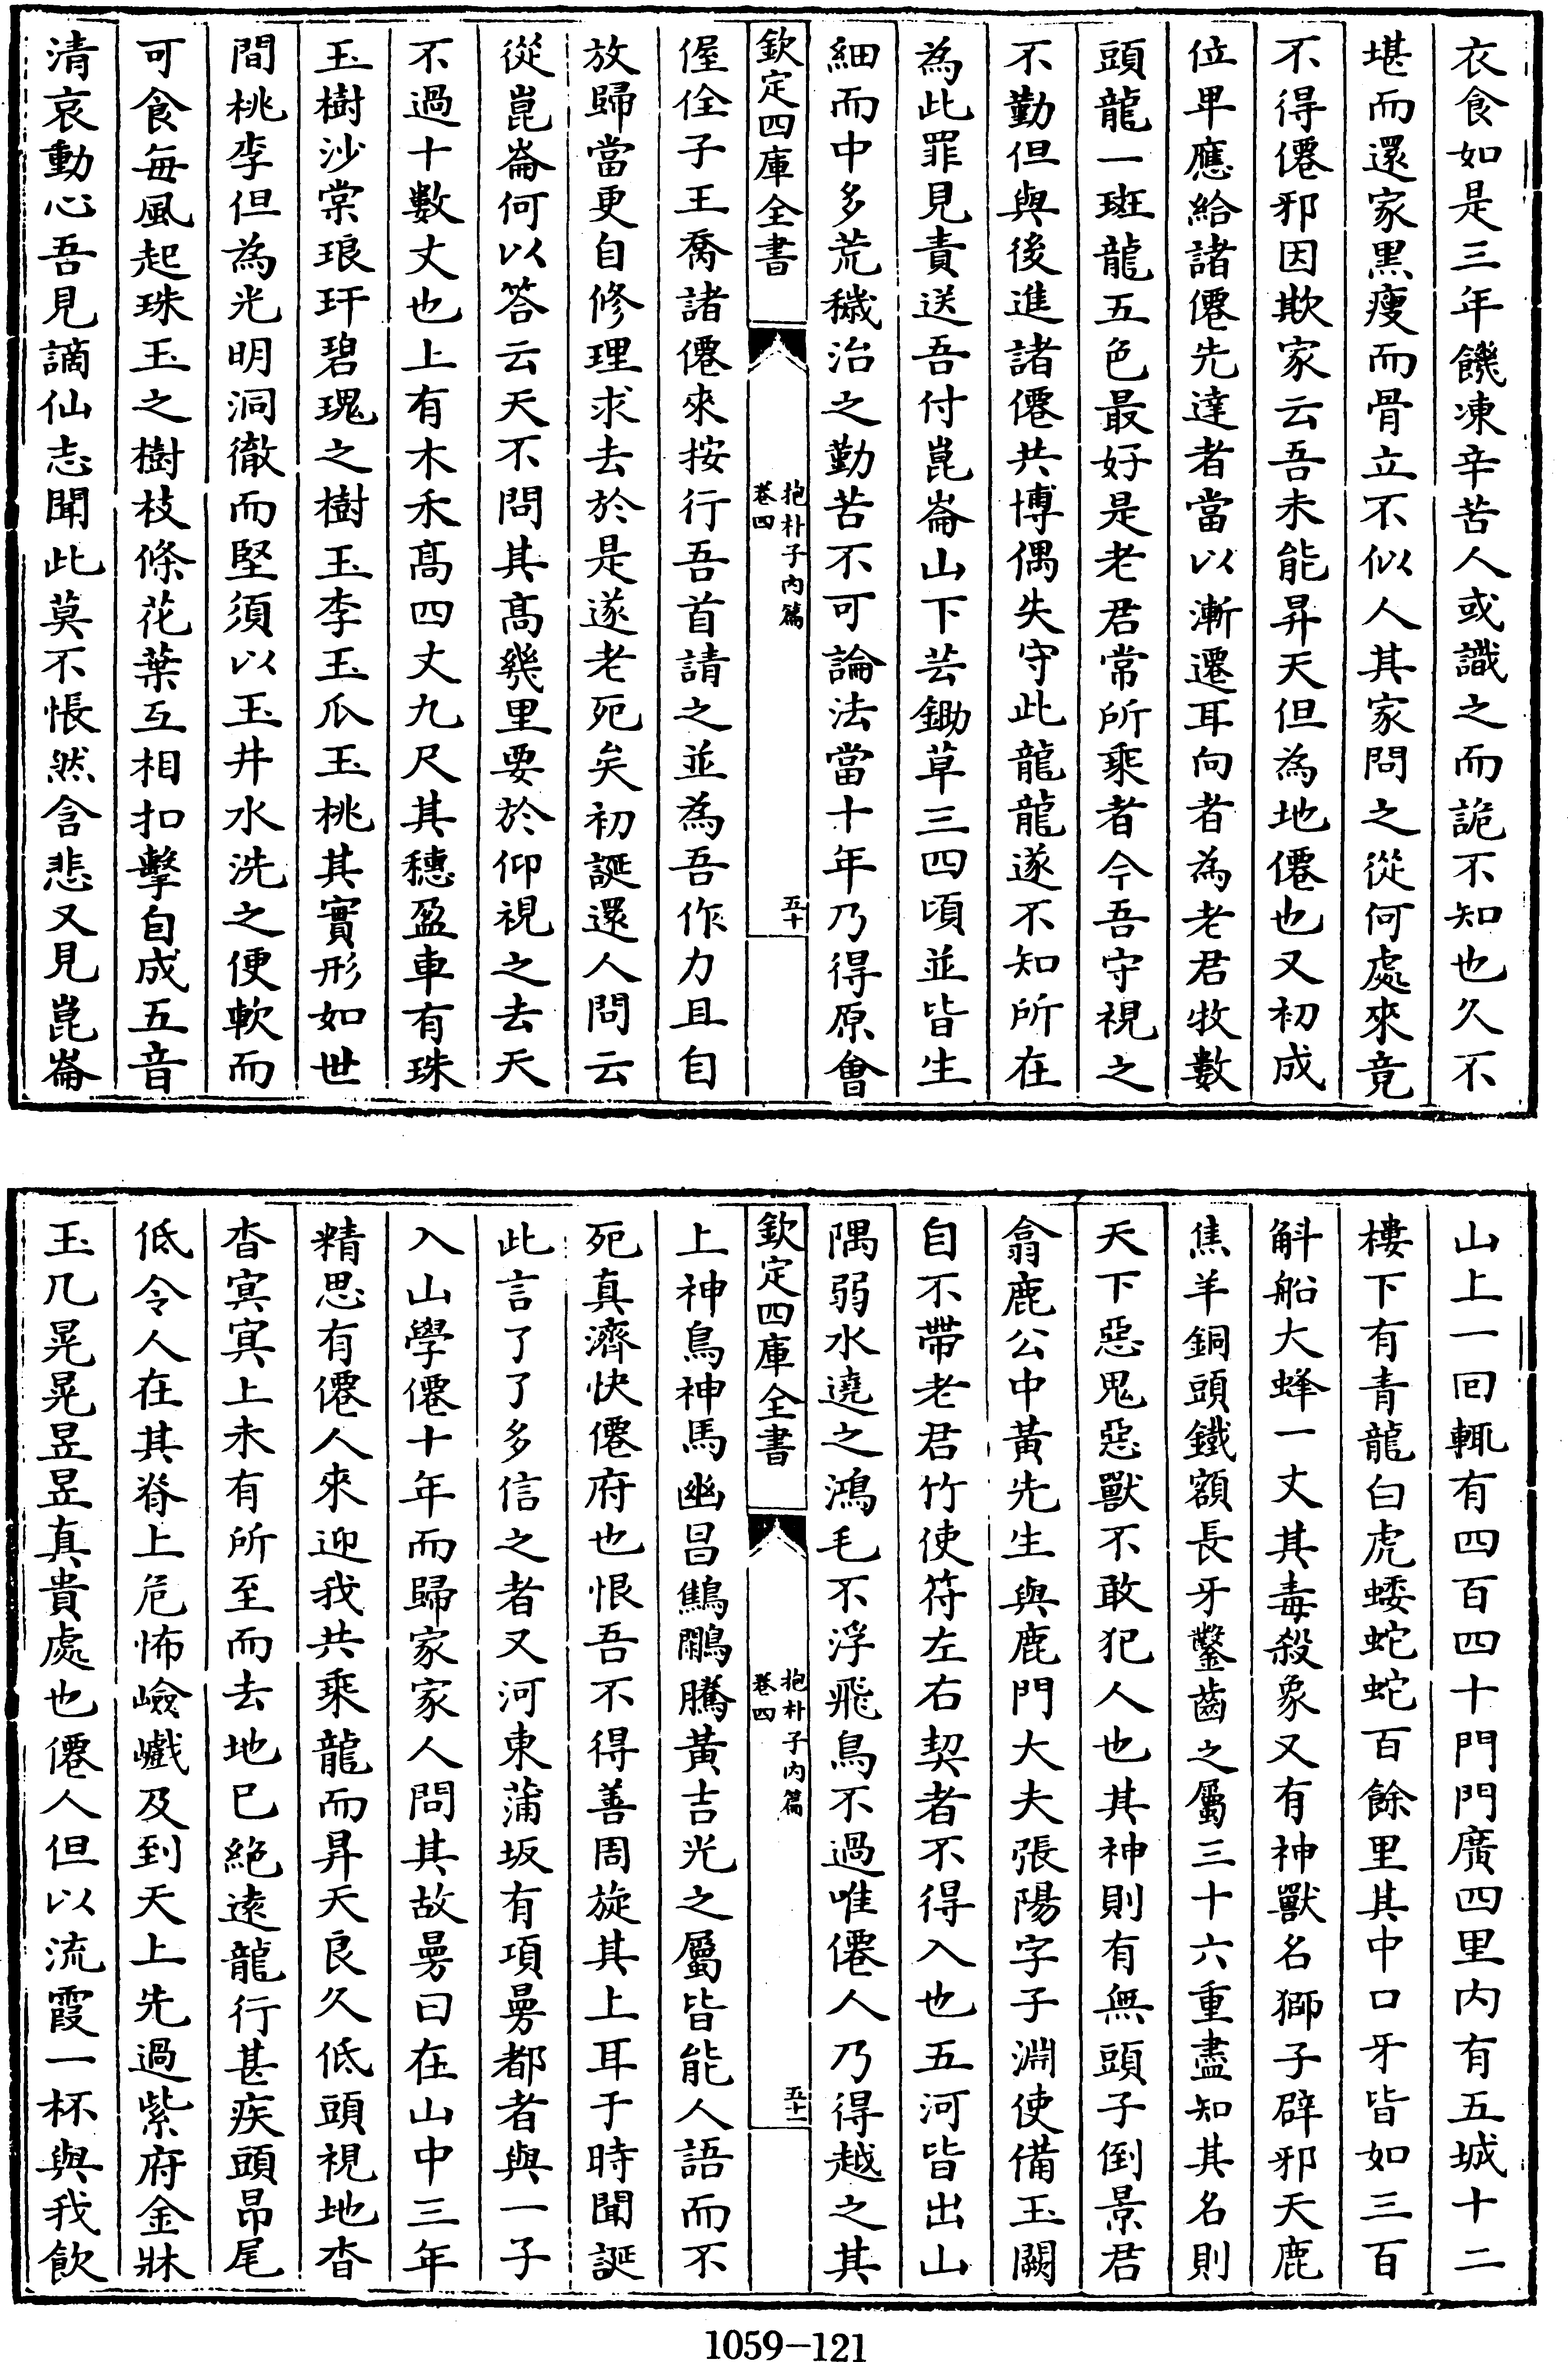 衣食如是三年饑凍辛苦人或識之而詭不知也久不
堪而還家黒瘦而骨立不似人其家問之從何處來竟
不得僊邪因欺家云吾未能昇天但為地僊也又初成
位卑應給諸僊先達者當以漸遷耳向者為老君牧數
頭龍一斑龍五色最好是老君常所乘者令吾守視之
不勤但與後進諸僊共博偶失守此龍龍遂不知所在
為此罪見責送吾付崑崙山下芸鋤草三四頃並皆生
細而中多荒穢治之勤苦不可論法當十年乃得原會
欽定四庫全書
抱朴子内篇
卷四
五十
偓佺子王喬諸僊來按行吾首請之並為吾作力且自
放歸當更自修理求去於是遂老死矣初誕還人問云
從崑崙何以答云天不問其髙幾里要於仰視之去天
不過十數丈也上有木禾髙四丈九尺其穗盈車有珠
玉樹沙棠琅玕碧瑰之樹玉李玉瓜玉桃其實形如世
間桃李但為光明洞徹而堅須以玉井水洗之便軟而
可食每風起珠玉之樹枝條花葉互相扣擊自成五音
清哀動心吾見謫仙志聞此莫不悵然含悲又見崑崙
山上一囘輒有四百四十門門廣四里内有五城十二
樓下有青龍白虎蜲蛇蛇百餘里其中口牙皆如三百
斛船大蜂一丈其毒殺象又有神獸名獅子辟邪天鹿
焦羊銅頭鐵額長牙鑿齒之屬三十六重盡知其名則
天下惡鬼惡獸不敢犯人也其神則有無頭子倒景君
翕鹿公中黃先生與鹿門大夫張陽字子淵使備玉闕
自不帶老君竹使符左右契者不得入也五河皆出山
隅弱水遶之鴻毛不浮飛鳥不過唯僊人乃得越之其
欽定四庫全書
抱朴子内篇
卷四
五十一
上神鳥神馬幽昌鷦䴋騰黃吉光之屬皆能人語而不
死真濟快僊府也恨吾不得善周旋其上耳于時聞誕
此言了了多信之者又河東蒲坂有項曼都者與一子
入山學僊十年而歸家家人問其故曼曰在山中三年
精思有僊人來迎我共乘龍而昇天良久低頭視地杳
杳冥冥上未有所至而去地已絶遠龍行甚疾頭昂尾
低令人在其脊上危怖嶮巇及到天上先過紫府金牀
玉几晃晃昱昱真貴處也僊人但以流霞一杯與我飲
1059-121